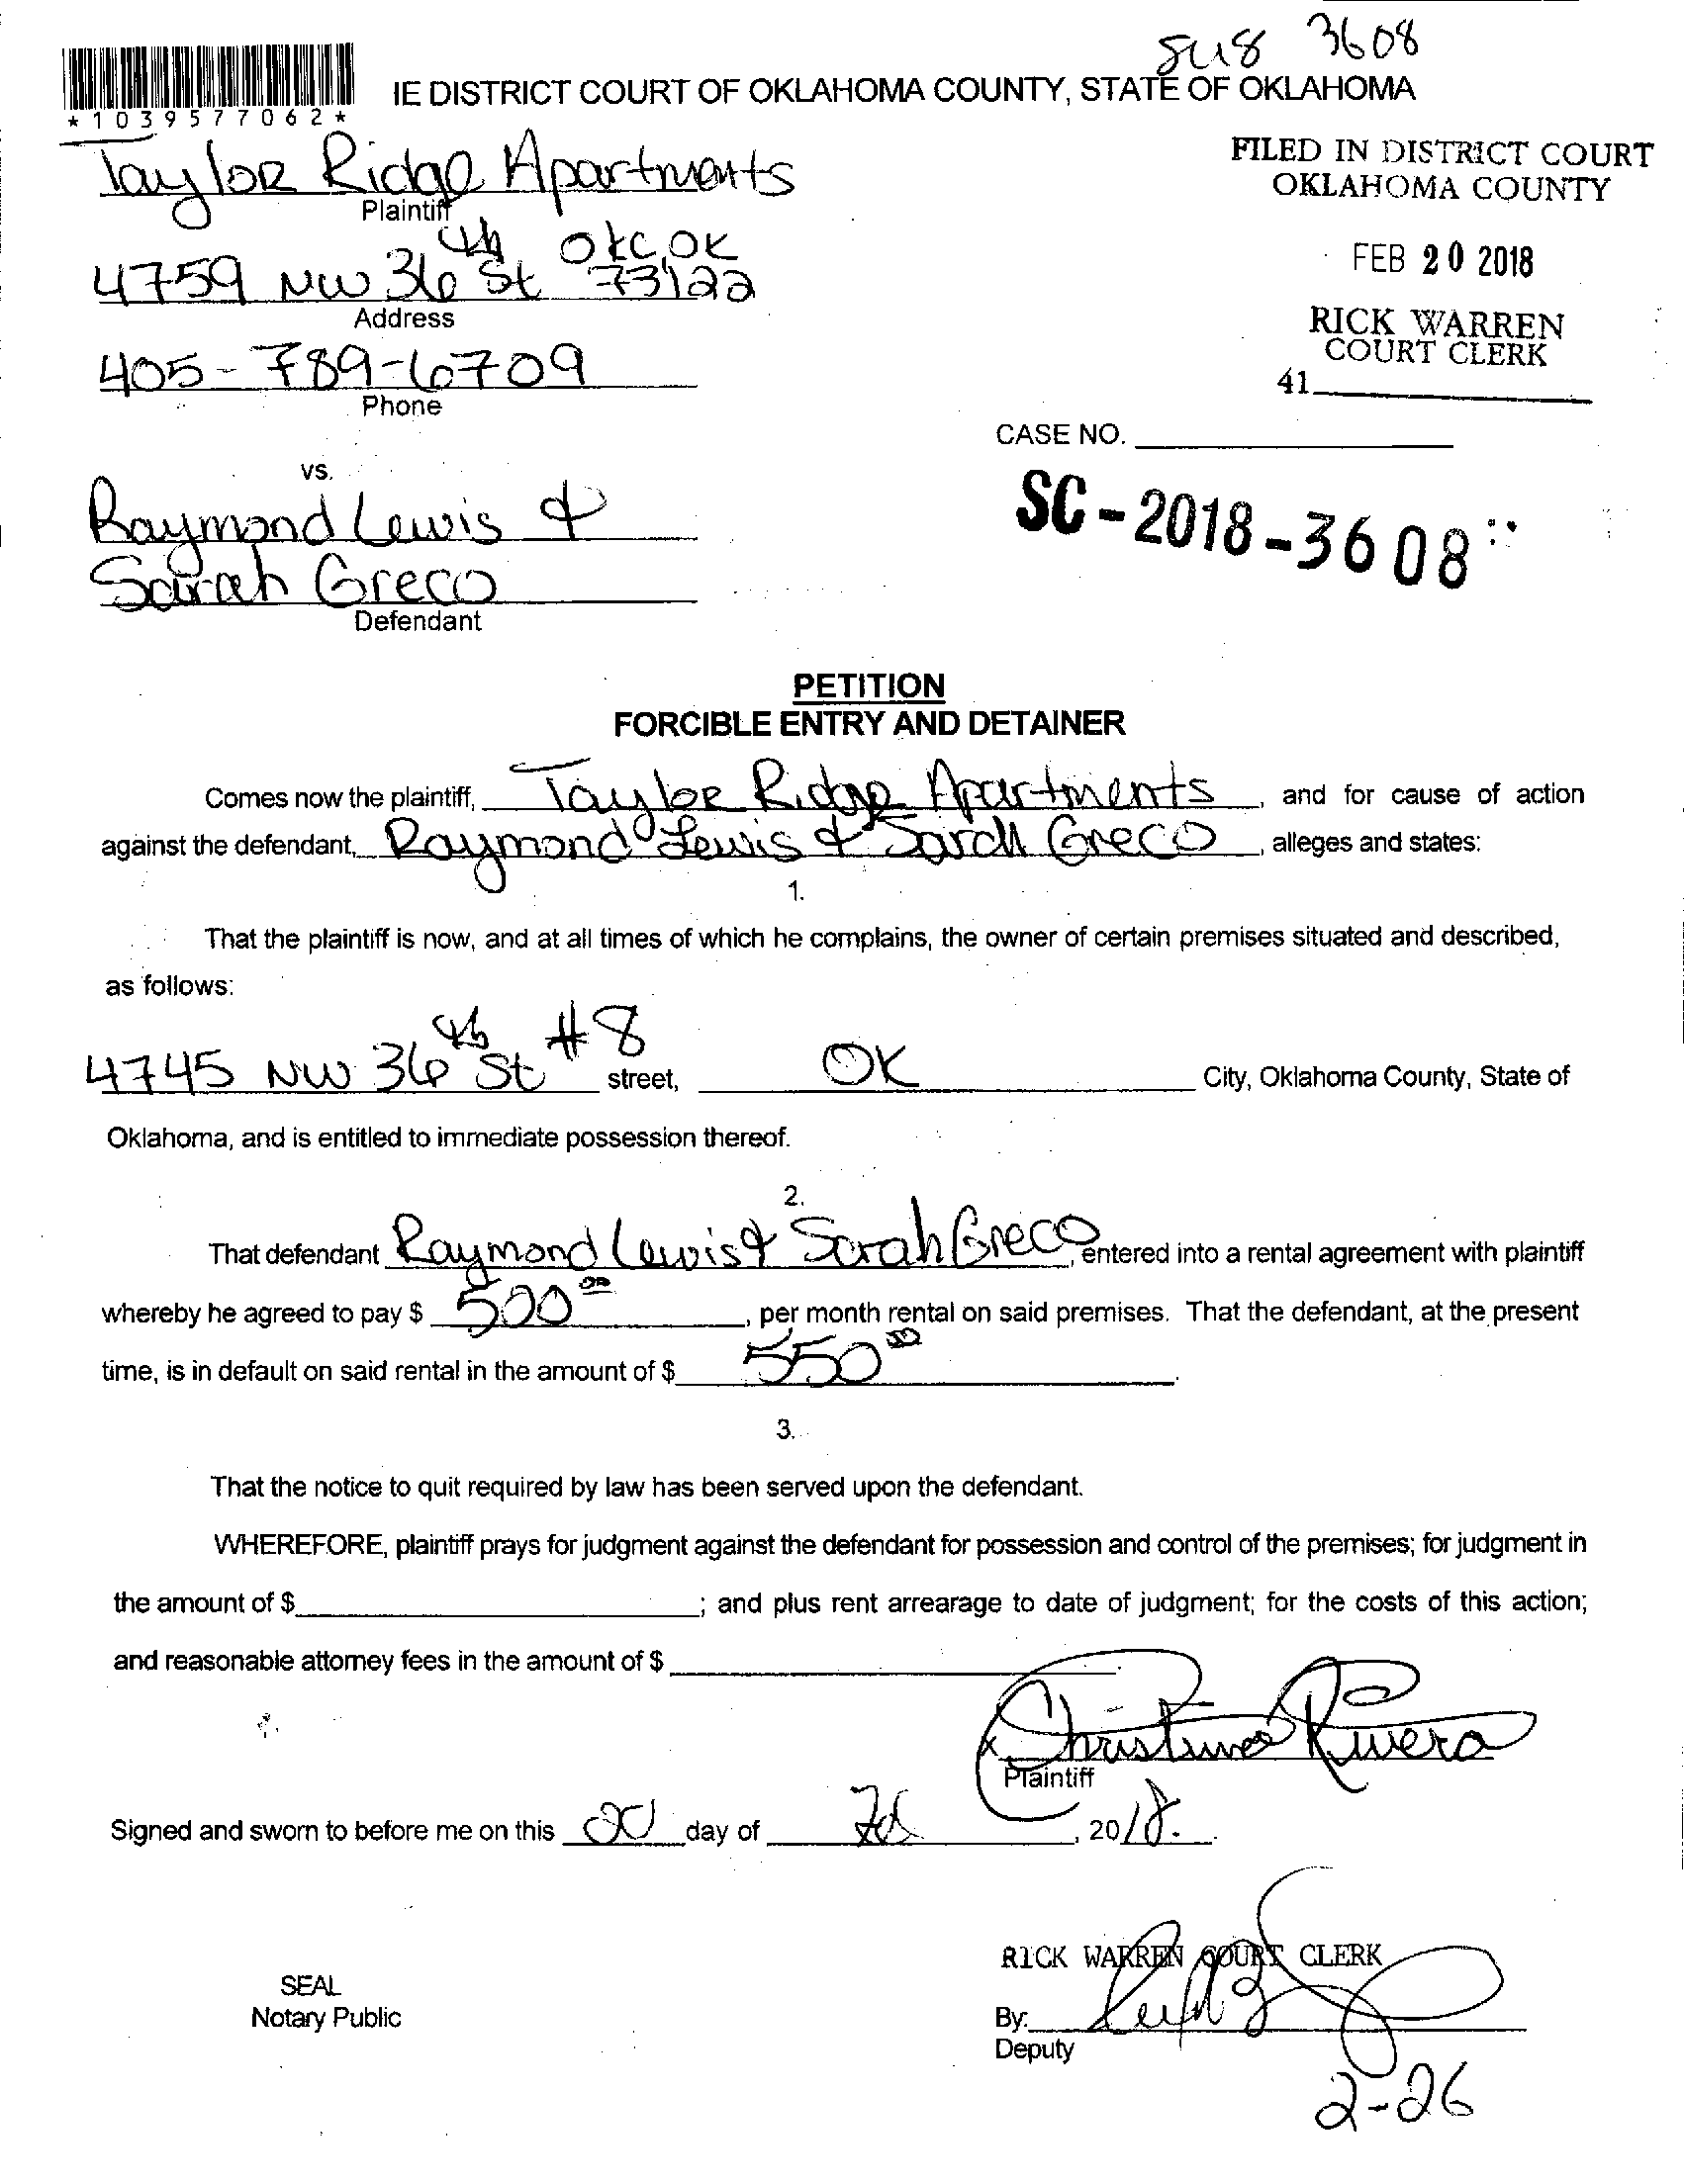 3608
IE DISTRICT COURT OF OKLAHOMA COUNTY, STATE OF OKLAHOMA
*1039577062*
FILED IN DISTRICT COURT
OKLAHOMA COUNTY
Taylor Ridge Apartments
Plaintiff
FEB 20 2018
4759 NW 36th St OKC OK 73122
Address
RICK WARREN
COURT CLERK
41
405-789-6709
Phone
CASE NO.
vs.
SC-2018-3608
Raymond Lewis &
Sarah Greco
Defendant
PETITION
FORCIBLE ENTRY AND DETAINER
Comes now the plaintiff, Taylor Ridge Apartments, and for cause of action
against the defendant, Raymond Lewis & Sarah Greco, alleges and states:
1.
That the plaintiff is now, and at all times of which he complains, the owner of certain premises situated and described,
as follows:
4745 NW 36th St #8 street, OK City, Oklahoma County, State of
Oklahoma, and is entitled to immediate possession thereof.
2.
That defendant Raymond Lewis & Sarah Greco, entered into a rental agreement with plaintiff
whereby he agreed to pay $ 500.00, per month rental on said premises. That the defendant, at the present
time, is in default on said rental in the amount of $ 550.00.
3.
That the notice to quit required by law has been served upon the defendant.
WHEREFORE, plaintiff prays for judgment against the defendant for possession and control of the premises; for judgment in
the amount of $ ; and plus rent arrearage to date of judgment; for the costs of this action;
and reasonable attorney fees in the amount of $ .
x Christina Rivera
Plaintiff
Signed and sworn to before me on this 20 day of Feb, 2018.
RICK WARREN COURT CLERK
SEAL
Notary Public
By:
Deputy
2-26